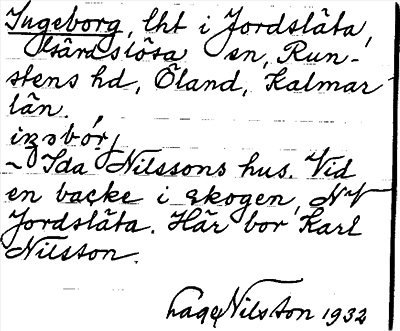 Ingeborg, lht i Jordsläta,
Gärdslösa sn, Run-
stens hd, Öland, Kalmar
län.
insbór,
~ Ida Nilssons hus. Vid
en backe i skogen, NV
Jordsläta. Här bor Karl
Nilsson.
Nilsson 1932